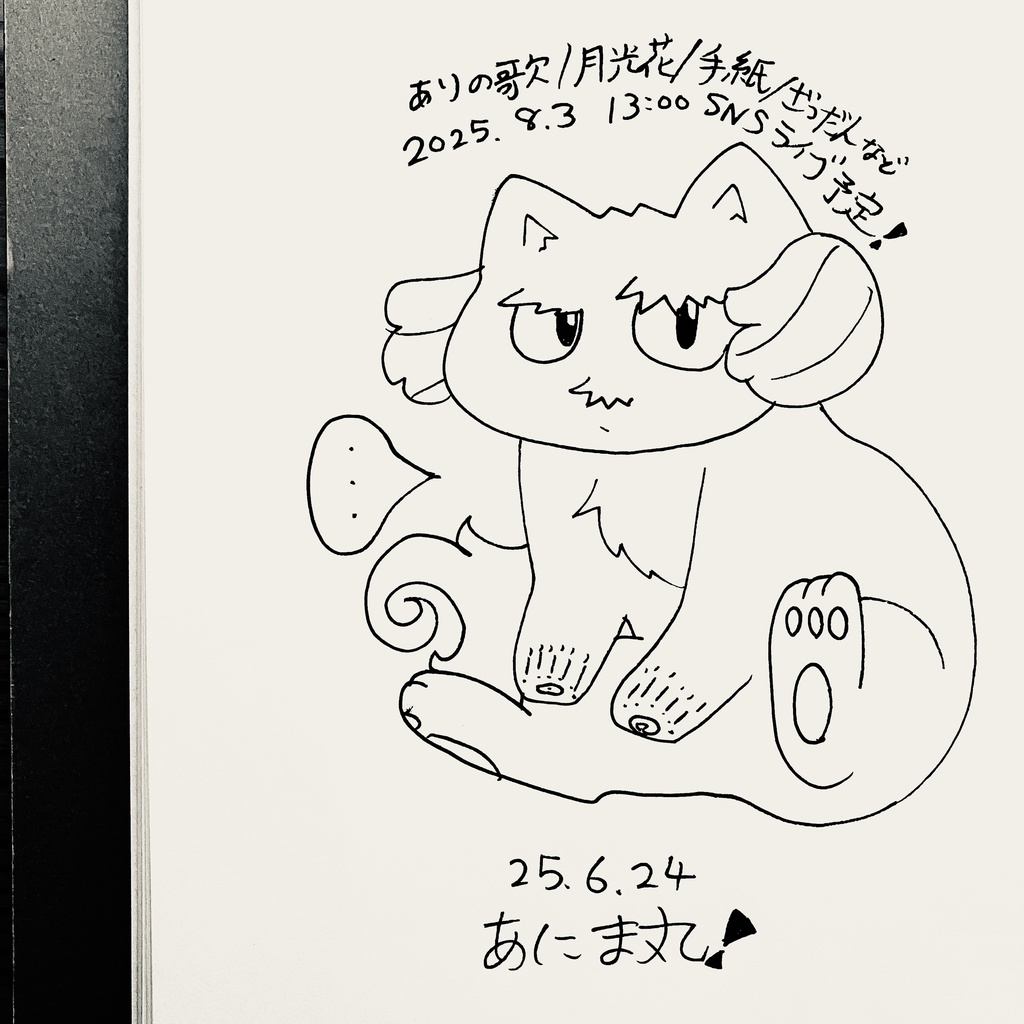 ありの歌/月光花/手紙/ざつだんなど
2025.8.3 13:00 SNSライブ予定!
...
25.6.24
あにま丸!